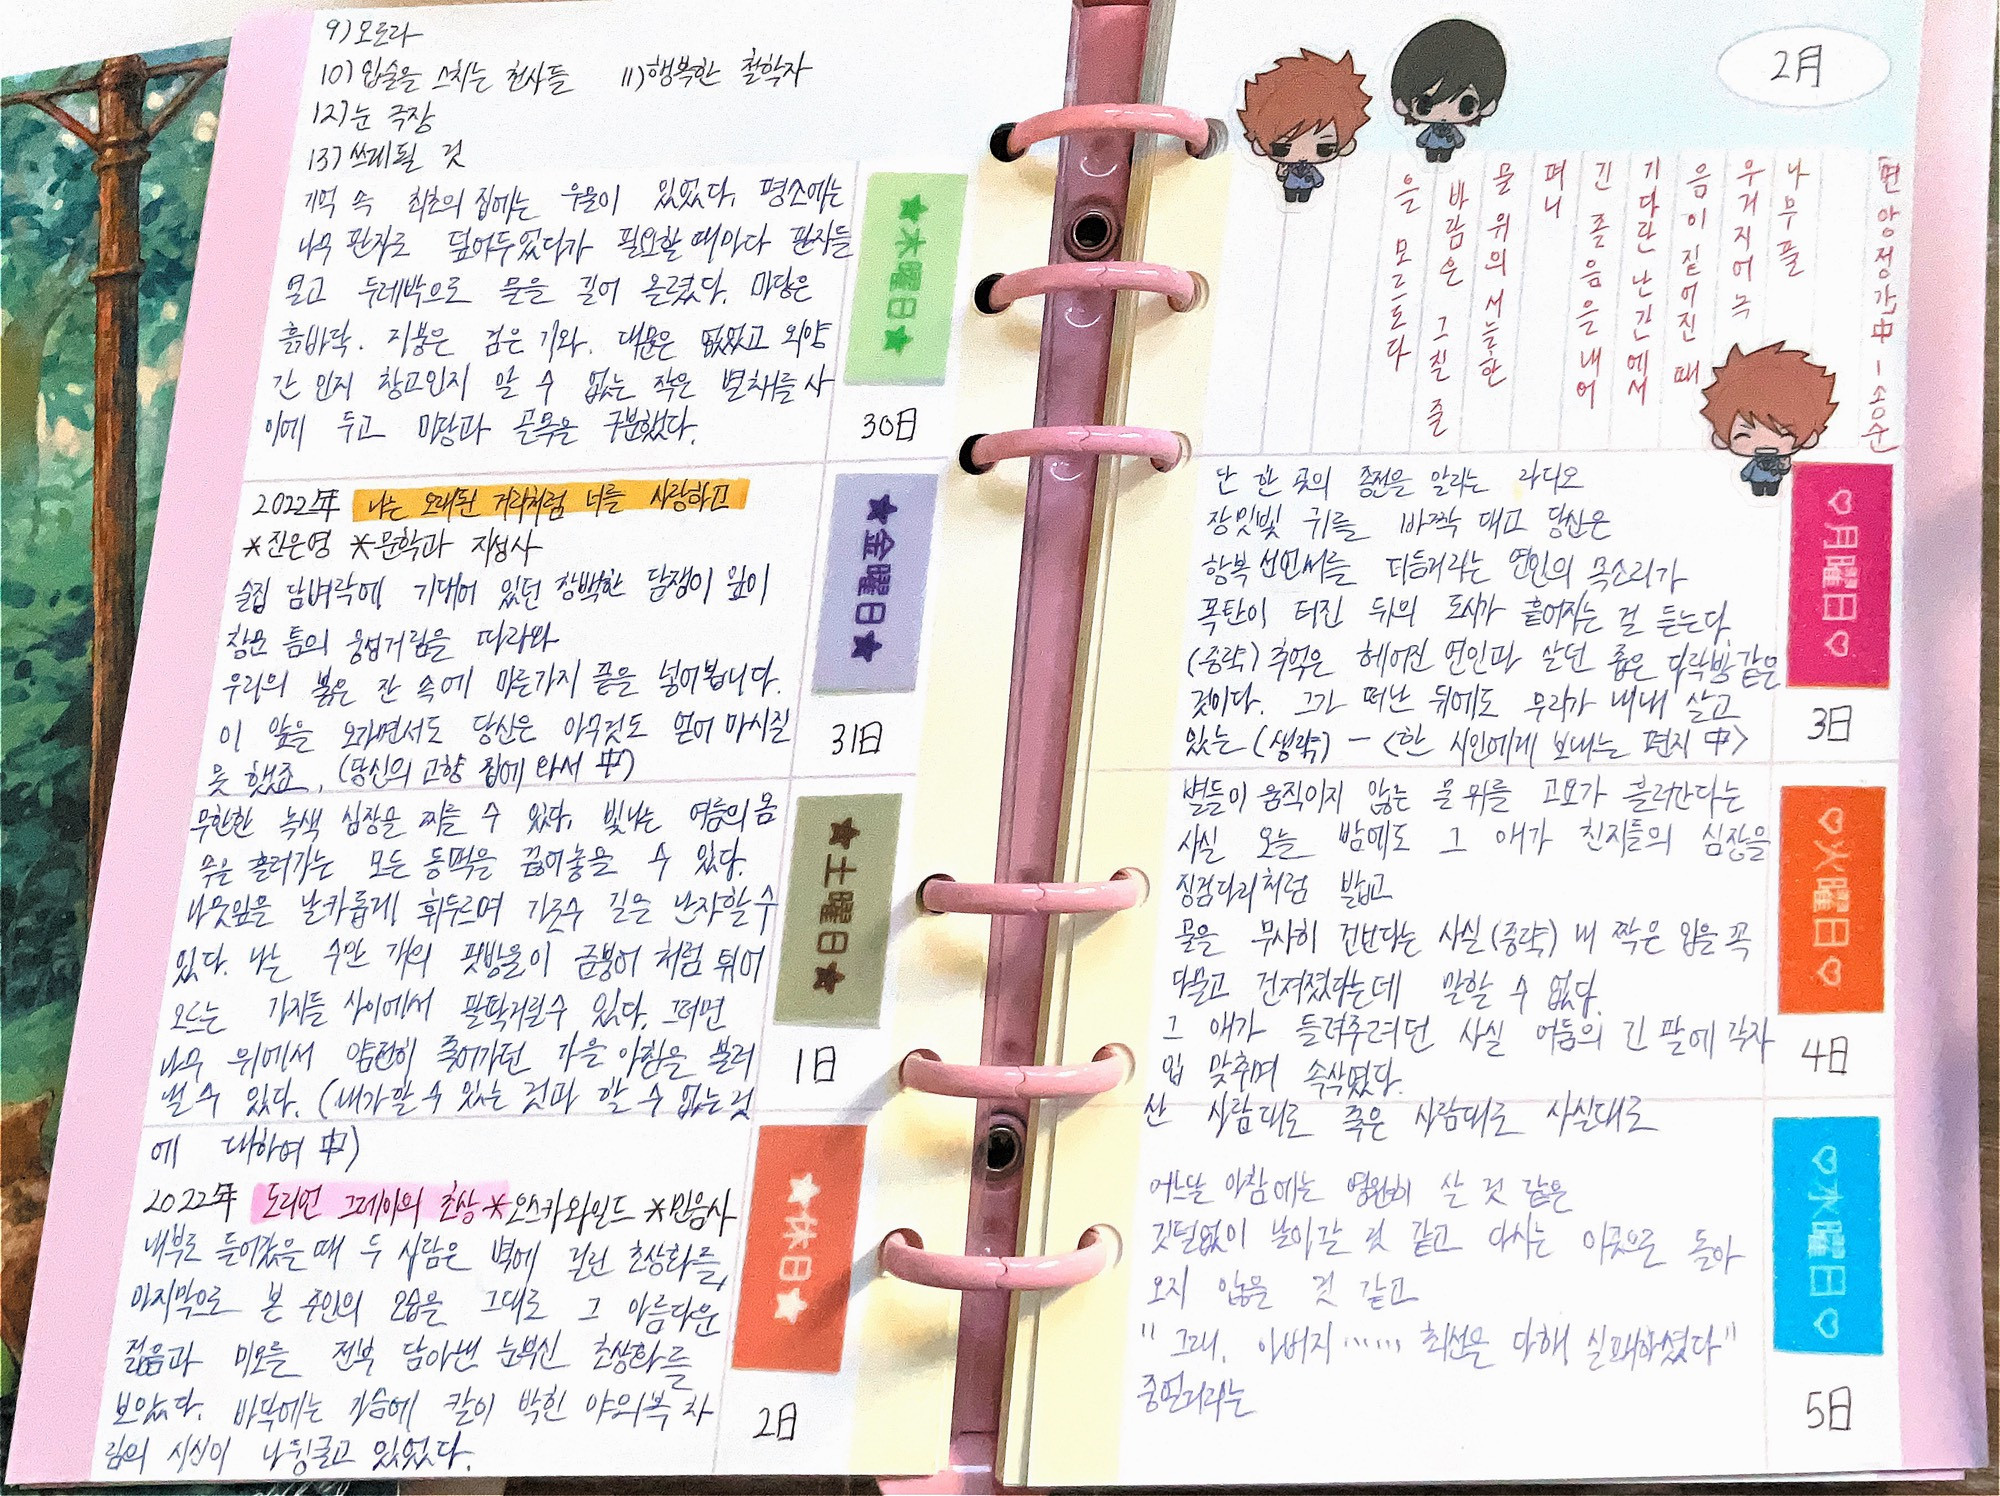 9) 오로라
10) 입술을 스치는 천사들 11) 행복한 철학자
12) 눈 극장
13) 쓰게 될 것
기억 속 최초의 집에는 우물이 있었다. 평소에는
나무 판자로 덮어두었다가 필요할 때마다 판자를
열고 두레박으로 물을 길어 올렸다. 마당은
흙바닥. 지붕은 검은 기와. 대문은 없었고 외양
간 인지 창고인지 알 수 없는 작은 별채를 사
이에 두고 마당과 골목을 구분했다.
★木曜日★
30日
2022年 나는 오래된 거리처럼 너를 사랑하고
*진은영 *문학과 지성사
술집 담벼락에 기대어 있던 창백한 담쟁이 잎이
창문 틈의 웅성거림을 따라와
우리의 붉은 잔 속에 마른가지 끝을 넣어봅니다.
이 앞을 오가면서도 당신은 아무것도 얻어 마시질
못 했죠. (당신의 고향 집에 와서 中)
★金曜日★
31日
무한한 녹색 심장을 찌를 수 있다. 빛나는 여름의 몸
속을 흘러가는 모든 동맥을 끊어놓을 수 있다.
나뭇잎을 날카롭게 휘두르며 가로수 길을 난자할 수
있다. 나는 수만 개의 핏방울이 금붕어 처럼 튀어
오르는 가지들 사이에서 팔딱거릴 수 있다. 그러면
나무 위에서 얌전히 죽어가던 가을 아침을 불러
낼 수 있다. (내가 할 수 있는 것과 할 수 없는 것
에 대하여 中)
★土曜日★
1日
2022年 도리언 그레이의 초상 *오스카와일드 *민음사
내부로 들어갔을 때 두 사람은 벽에 걸린 초상화를,
마지막으로 본 주인의 모습을 그대로 그 아름다운
젊음과 미모를 전부 담아낸 눈부신 초상화를
보았다. 바닥에는 가슴에 칼이 박힌 야회복 차
림의 시신이 나뒹굴고 있었다.
★休日★
2日
2月
면앙정가 中 - 송순
나무풀
우거지어 녹
음이 짙어진 때
기다란 난간에서
긴 졸음을 내어
펴니
물 위의 서늘한
바람은 그칠 줄
을 모르도다
단 한 곳의 종전을 알리는 라디오
장밋빛 귀를 바짝 대고 당신은
항복 선언서를 더듬거리는 연인의 목소리가
폭탄이 터진 뒤의 도시가 흩어지는 걸 듣는다.
(중략) 추억은 헤어진 연인과 살던 좁은 다락방 같은
것이다. 그가 떠난 뒤에도 우리가 내내 살고
있는 (생략) - <한 시인에게 보내는 편지 中>
♡月曜日♡
3日
별들이 움직이지 않는 물 위를 고요가 흘러간다는
사실 오늘 밤에도 그 애가 친지들의 심장을
징검다리처럼 밟고
골을 무사히 건넌다는 사실 (중략) 내 작은 입을 꼭
다물고 건져졌다는데 말할 수 없다.
그 애가 들려주려던 사실 어둠의 긴 팔에 각자
입 맞추며 속삭였다.
산 사람대로 죽은 사람대로 사실대로
♡火曜日♡
4日
어느날 아침에는 영원히 살 것 같은
깃털없이 날아갈 것 같고 다시는 이곳으로 돌아
오지 않을 것 같고
"그래, 아버지…… 최선을 다해 실패하셨다"
중얼거리는
♡水曜日♡
5日